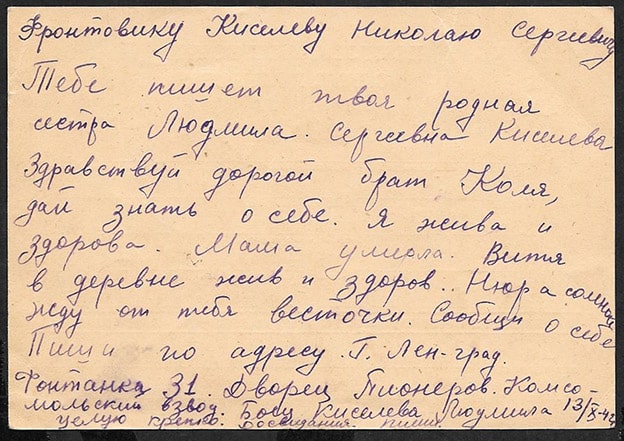 Фронтовику Киселеву Николаю Сергиевичу
Тебе пишет твоя родная
сестра Людмила. Сергеевна Киселева
Здравствуй дорогой брат Коля,
дай знать о себе. Я жива и
здорова. Мама умирла. Витя
в деревне жив и здоров.. Нюра со мной
жду от тебя весточки. Сообщи о себе
Пиши по адресу. Г. Лен-град.
Фонтанка 31. Дворец Пионеров. Комсо-
мольский взвод. Боец Киселева Людмила 13/X-42
целую крепко. Досвидания. пиши.